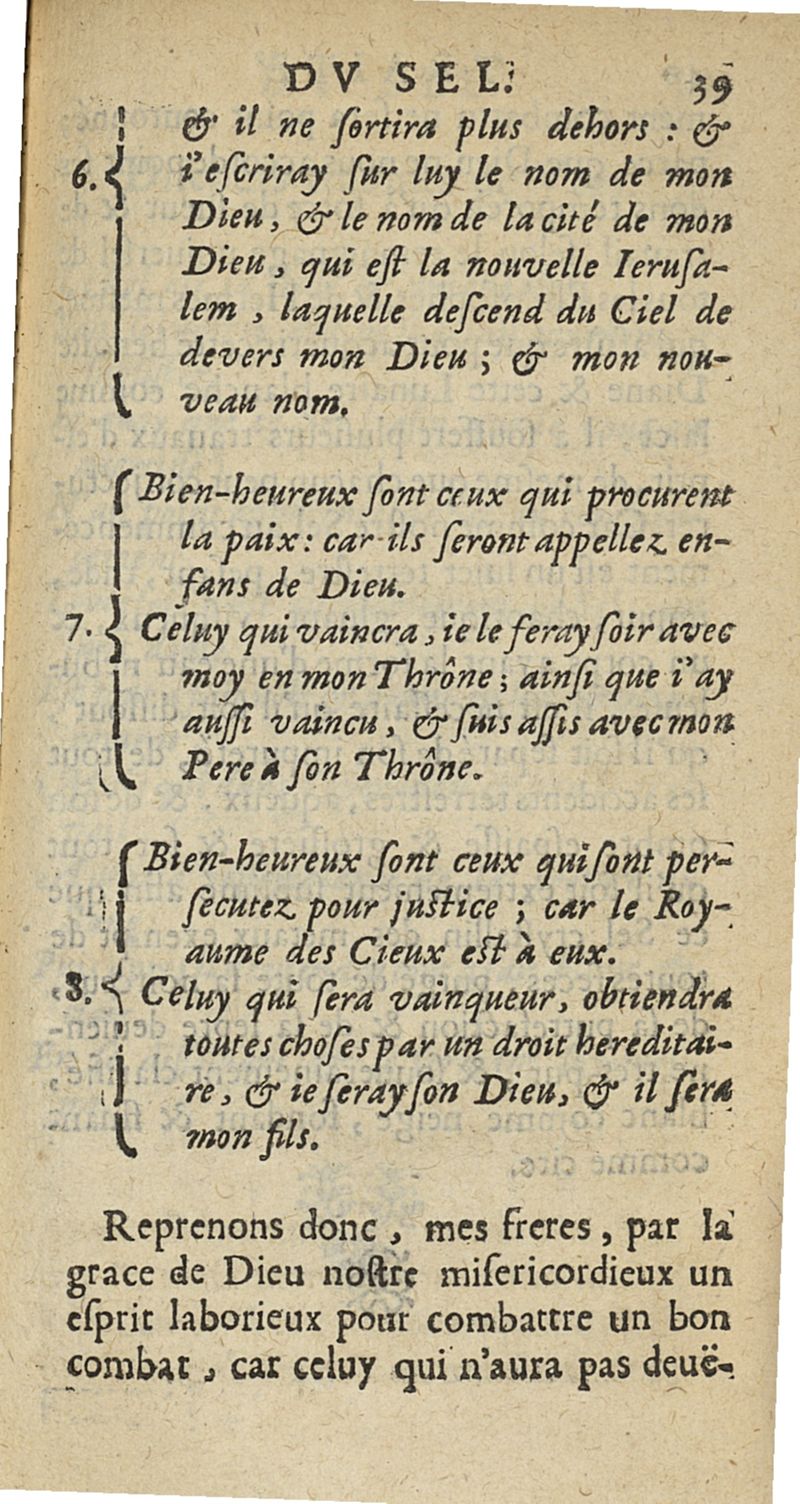 DV SEL. 39
& il ne ſortira plus dehors : &
6. i'eſcriray ſur luy le nom de mon
Dieu, & le nom de la cité de mon
Dieu, qui eſt la nouvelle Ieruſa-
lem, laquelle deſcend du Ciel de
devers mon Dieu ; & mon nou-
veau nom.
Bien-heureux ſont ceux qui procurent
la paix : car ils ſeront appellez en-
fans de Dieu.
7. Celuy qui vaincra, ie le feray ſoir avec
moy en mon Thrône ; ainſi que i'ay
auſſi vaincu, & ſuis aſſis avec mon
Pere à ſon Thrône.
Bien-heureux ſont ceux qui ſont per-
ſecutez pour juſtice ; car le Roy-
aume des Cieux eſt à eux.
8. Celuy qui ſera vainqueur, obtiendra
toutes choſes par un droit hereditai-
re, & ie ſeray ſon Dieu, & il ſera
mon fils.
Reprenons donc, mes freres, par la
grace de Dieu noſtre miſericordieux un
eſprit laborieux pour combattre un bon
combat, car celuy qui n'aura pas deuë-